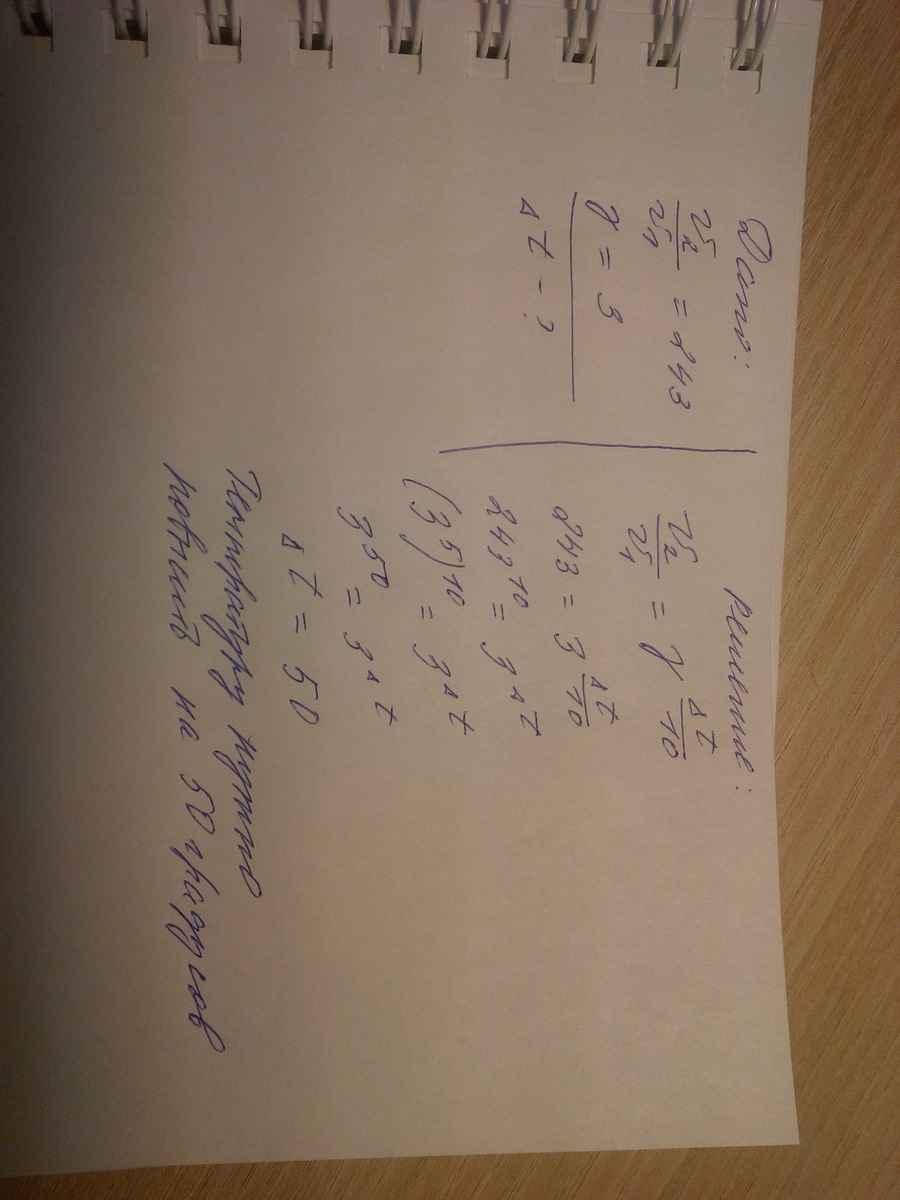 Дано:
v₂/v₁ = 243
γ = 3
Δt - ?
решение:
v₂/v₁ = γ^(Δt/10)
243 = 3^(Δt/10)
243^10 = 3^Δt
(3^5)^10 = 3^Δt
3^50 = 3^Δt
Δt = 50
Температуру нужно
повысить на 50 градусов